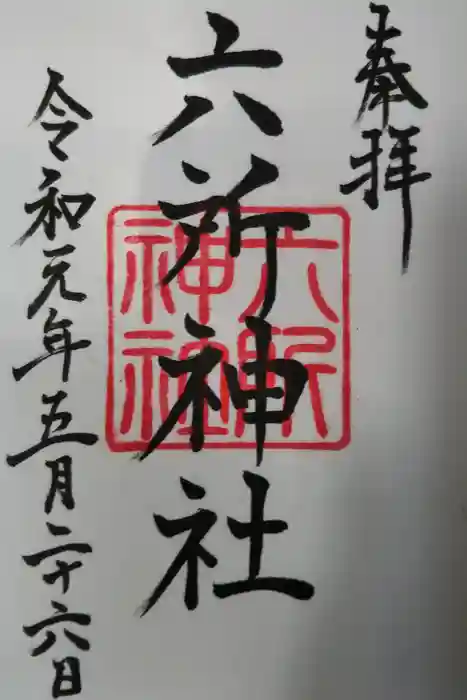 奉拝
六所神社
六所
神社
令和元年五月二十六日